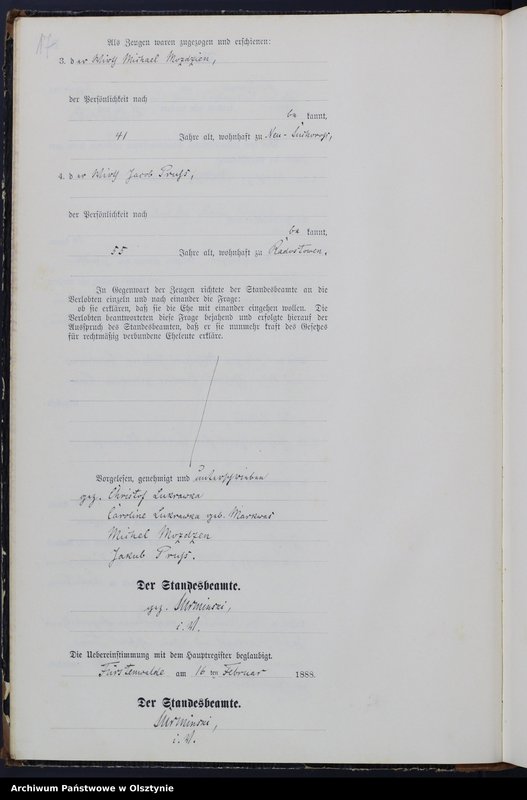 17.
Als Zeugen waren zugezogen und erschienen:
3. der Wirth Michael Mozdzien,
der Persönlichkeit nach
be kannt,
41 Jahre alt, wohnhaft zu Neu-Suchoroß,
4. der Wirth Jacob Pruss,
der Persönlichkeit nach
be kannt,
55 Jahre alt, wohnhaft zu Radostowen.
In Gegenwart der Zeugen richtete der Standesbeamte an die
Verlobten einzeln und nach einander die Frage:
ob sie erklären, daß sie die Ehe mit einander eingehen wollen. Die
Verlobten beantworteten diese Frage bejahend und erfolgte hierauf der
Ausspruch des Standesbeamten, daß er sie nunmehr kraft des Gesetzes
für rechtmäßig verbundene Eheleute erkläre.
Vorgelesen, genehmigt und unterschrieben
gez. Christof Lukrawka
Caroline Lukrawka geb. Markwas
Michel Mozdzen
Jakub Pruss.
Der Standesbeamte.
gez. Surminski,
i. V.
Die Uebereinstimmung mit dem Hauptregister beglaubigt.
Fürstenwalde am 16 ten Februar 1888.
Der Standesbeamte.
Surminski,
i. V.
Archiwum Państwowe w Olsztynie